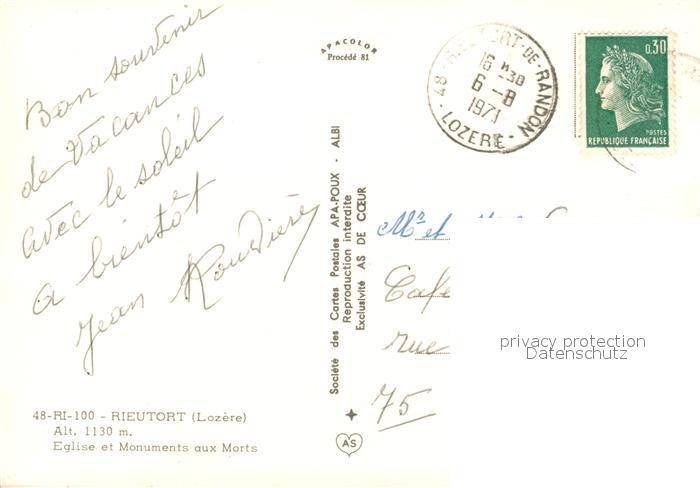 Bon souvenir
de Vacances
avec le soleil
a bientôt
Jean
APACOLOR
Procédé 81
48 - RIEUTORT-DE-RANDON
16 H30
6 - 8
1971
LOZERE
0,30
POSTES
REPUBLIQUE FRANÇAISE
Société des Cartes Postales APA-POUX - ALBI
Reproduction interdite
Exclusivité AS DE CŒUR
AS
Mr et
Cafe
rue
75
privacy protection
Datenschutz
48-RI-100 - RIEUTORT (Lozère)
Alt. 1130 m.
Eglise et Monuments aux Morts